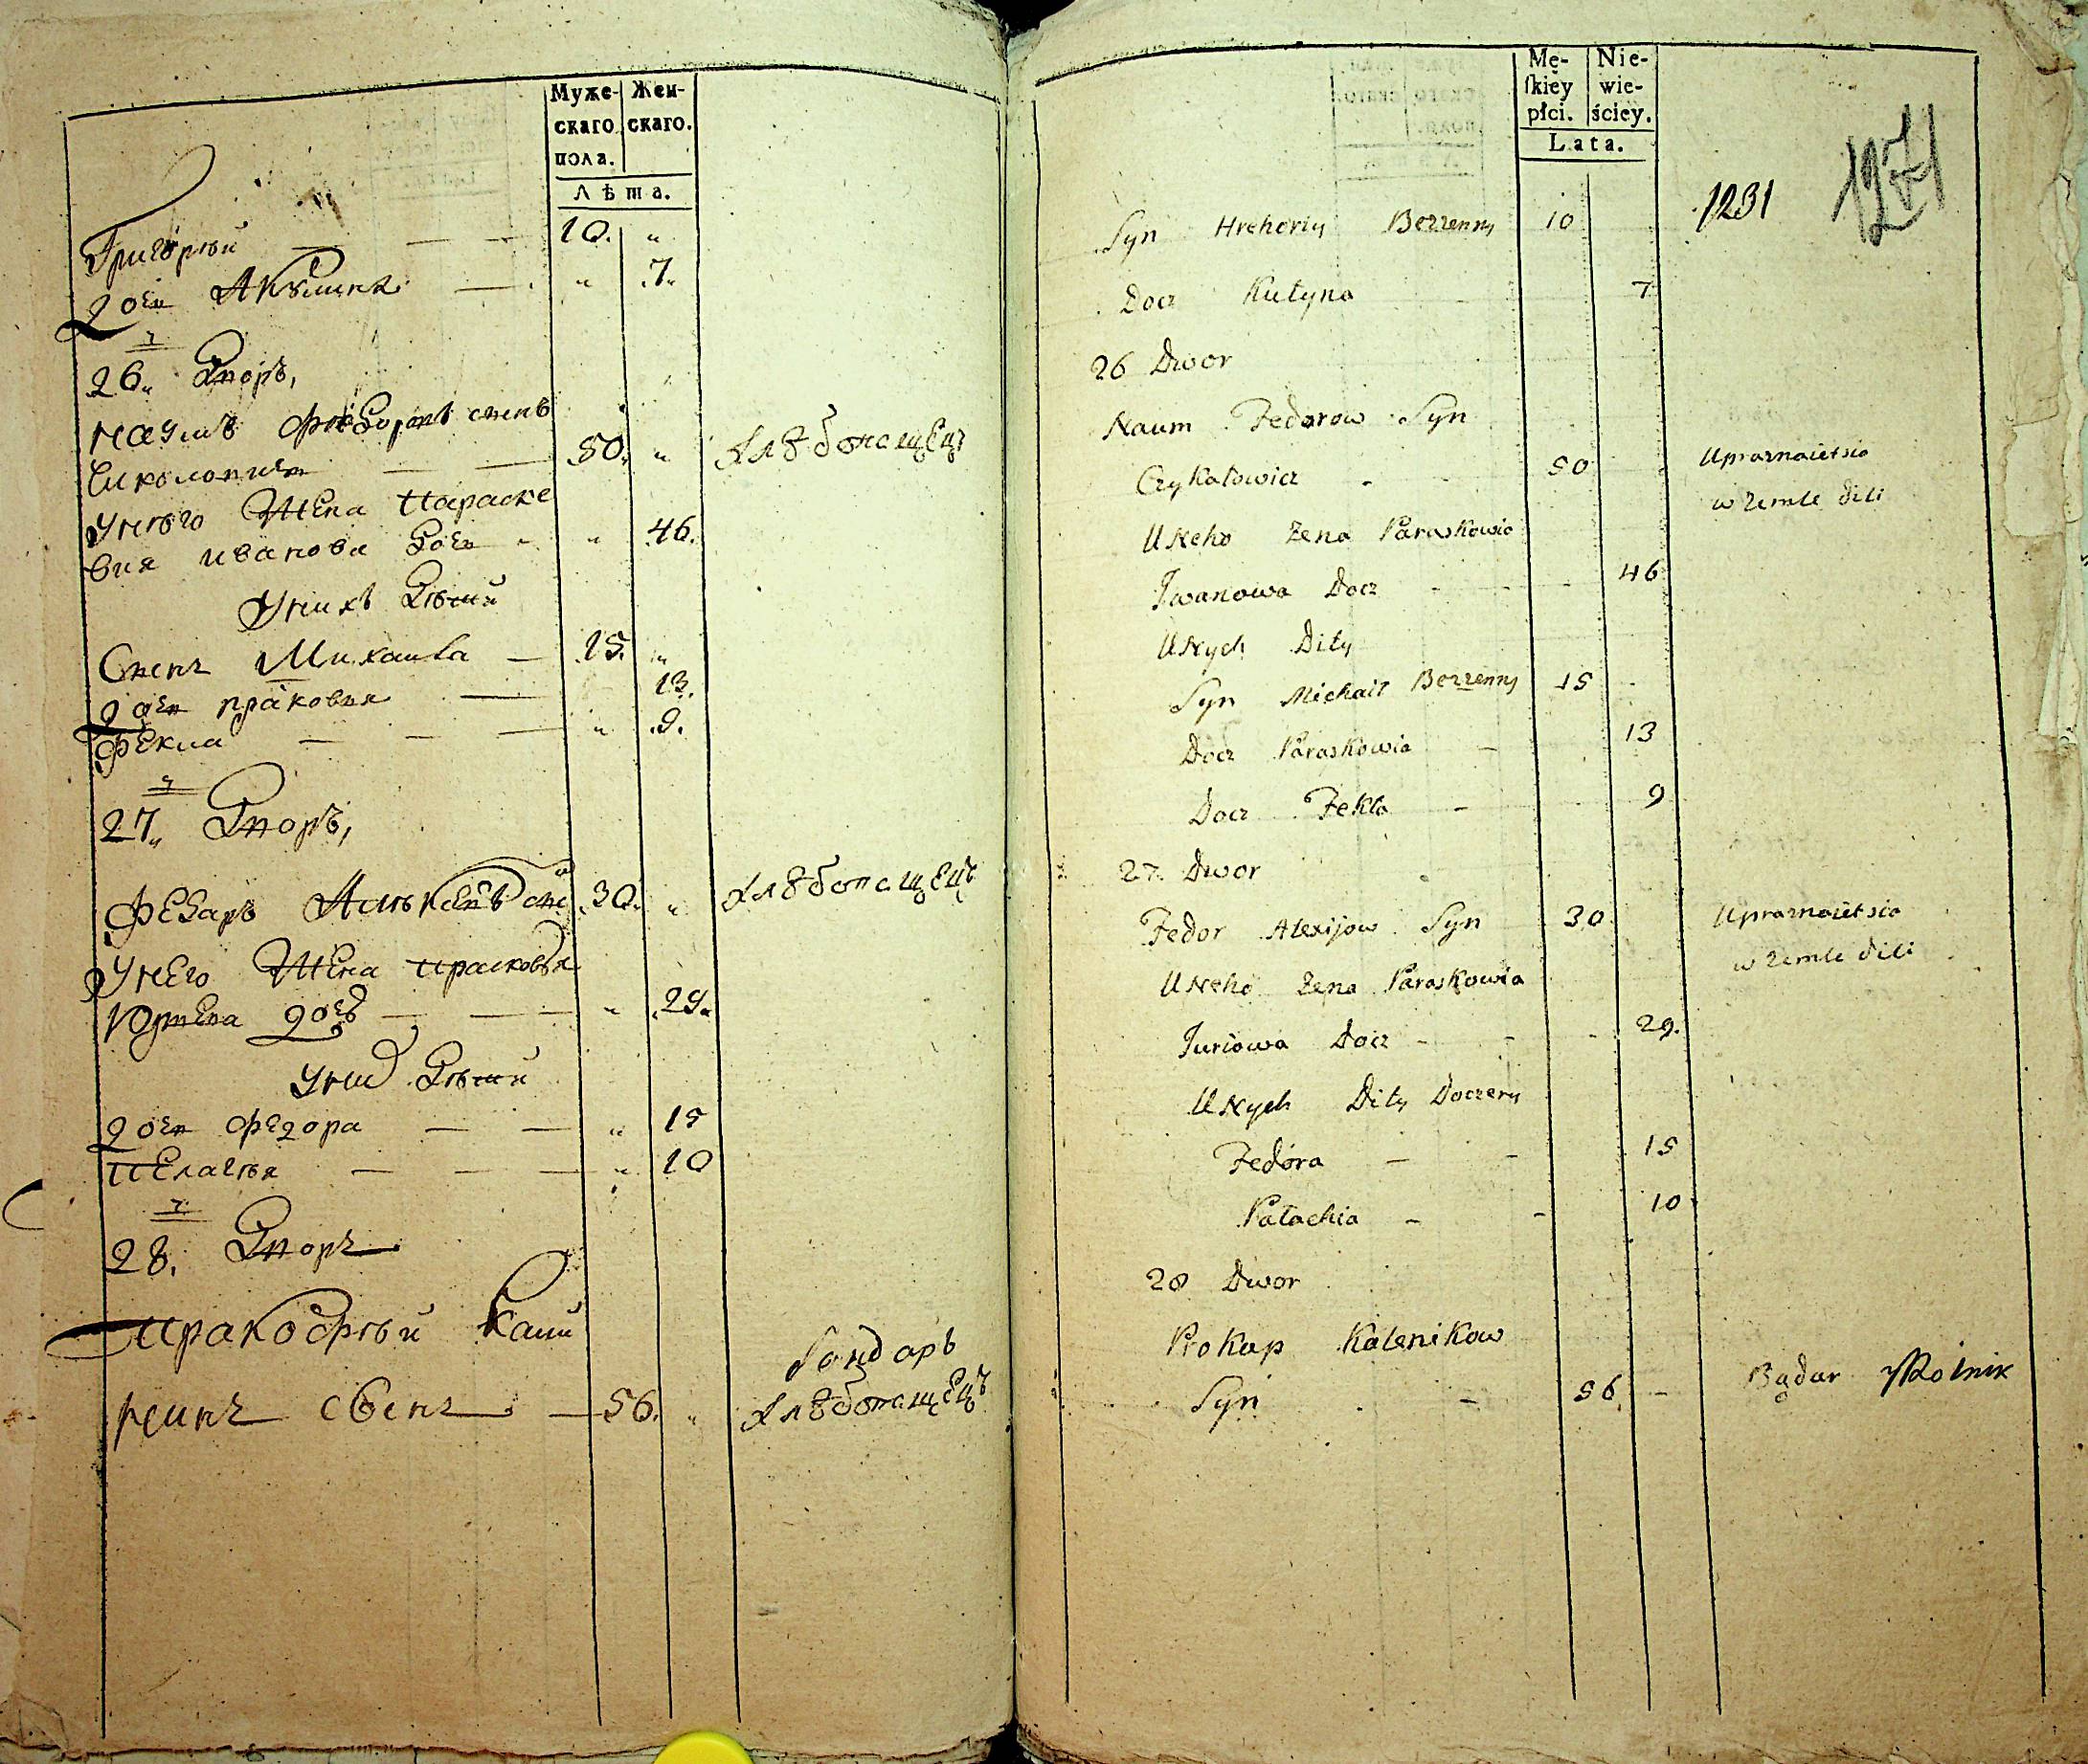 Муже-
скаго
пола.
Жен-
скаго.
Лѣта.
Григорій — — — 10. "
дочь Акулина — " 7.
26. Дворъ,
Наумъ Федоровъ сынъ
Чиколовичъ — — 50. " Хлѣбопашецъ
У него Жена Параске
вия Иванова дочь " 46.
У нихъ Дѣти
Сынъ Михаила — 15. "
дочь праковия — 13.
Фекла — — — " 9.
27. Дворъ,
Федаръ Алексѣевъ сынъ 30. " Хлѣбопашецъ
У него Жена прасковья
Юрьева дочь — — — " 29.
У них Дѣти
дочь Федора — — " 15
Пелагѣя — — — " 10
28. Дворъ
Пракофѣй Кали
нинъ сынъ — 56. " бондарь
Хлѣбопашецъ
Mę-
skiey
płci.
Nie-
wie-
ściey.
Lata.
1231
Syn Hrehoriy Bezzenny 10
Docz Kulyna 7
26 Dwor
Naum Fedorow Syn
Czykałowicz - 50 Upraznaietsia
w zemle dili
U Neho Zena Paraskowia
Iwanowa Docz - - 46
U Nych Dity
Syn Michaił Bezzenny 15
Docz Paraskowia - 13
Docz Fekla - 9
27 Dwor
Fedor Alexijow Syn 30 Upraznaietsia
w zemle dili
U Neho Zena Paraskowia
Juriowa Docz - - 29.
U Nych Dity Doczery
Fedora - - 15
Pałachia - - 10
28 Dwor
Prokop Kalenikow
Syn - 56 - Bądar Rolnik